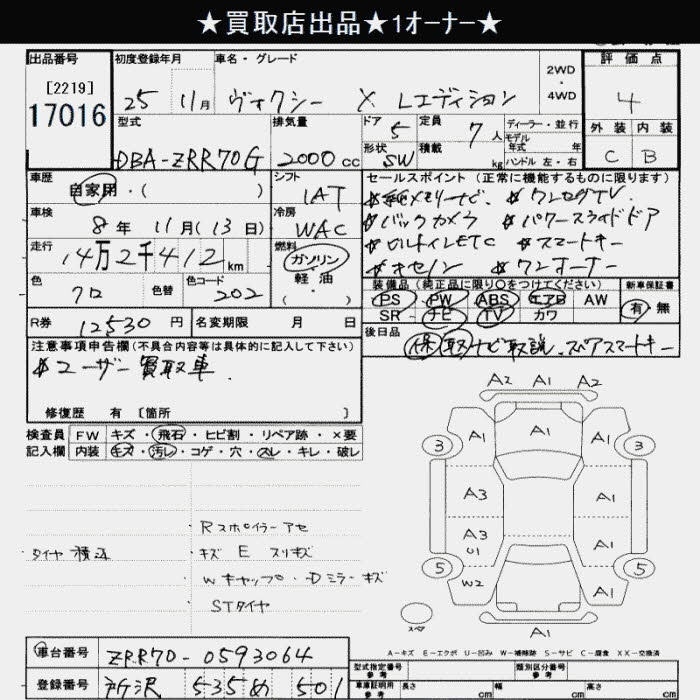 ★買取店出品★1オーナー★
出品番号 初度登録年月 車名・グレード 2WD・4WD 評価点
[2219]
17016
25 11月 ヴォクシー X Lエディション 4
型式 排気量 ドア 定員 ディーラー・並行 外装 内装
DBA-ZRR70G 2000cc 5 7人 モデル年式 年式 C B
形状 積載 ハンドル 左・右
SW kg
車歴 シフト セールスポイント (正常に機能するものに限ります)
自家用・( ) IAT #純メモリーナビ. #ワンセグTV.
車検 冷房 #バックカメラ #パワースライドドア
8年 11月(13日) WAC #ビルトインETC #スマートキー
走行 燃料 #キセノン #ワンオーナー
14万2千412km ガソリン・軽油・( )
色 色替 色コード 装備品(純正品に限り○をつけてください) 新車保証書
クロ 202 PS PW ABS エアB AW 有・無
SR ナビ TV カワ
R券 12530円 名変期限 月 日 後日品
保 取 ナビ取説. スペアスマートキー
注意事項申告欄(不具合内容等は具体的に記入して下さい)
#ユーザー買取車.
修復歴 有 [箇所 ]
検査員 FW キズ・飛石・ヒビ割・リペア跡・×要
記入欄 内装 キズ・汚レ・コゲ・穴・スレ・キレ・破レ
A2 A1 A2
3 A1 A1 A1 3
A3 A1 A1
A3 U1 A1 A1
5 W2 A1 5
A1
・Rスポイラーアセ
タイヤ積込 ・キズ E スリキズ
・Wキャップ・Dミラーキズ
・STタイヤ
スペア
A-キズ E-エクボ U-凹み W-補修跡 S-サビ C-腐食 XX-交換済
車台番号 ZRR70-0593064 型式指定番号 参考 類別区分番号 参考
登録番号 所沢 535 め 501 車庫証明用 参考 長さ cm 幅 cm 高さ cm